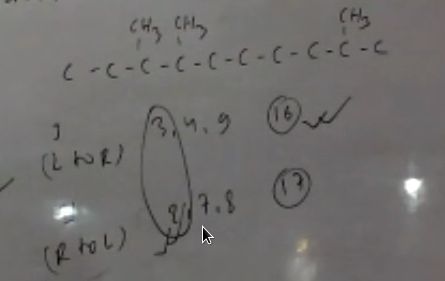 CH3 CH3 CH3
C - C - C - C - C - C - C - C - C - C
(L to R) 3, 4, 9 16
(R to L) 2, 7, 8 17